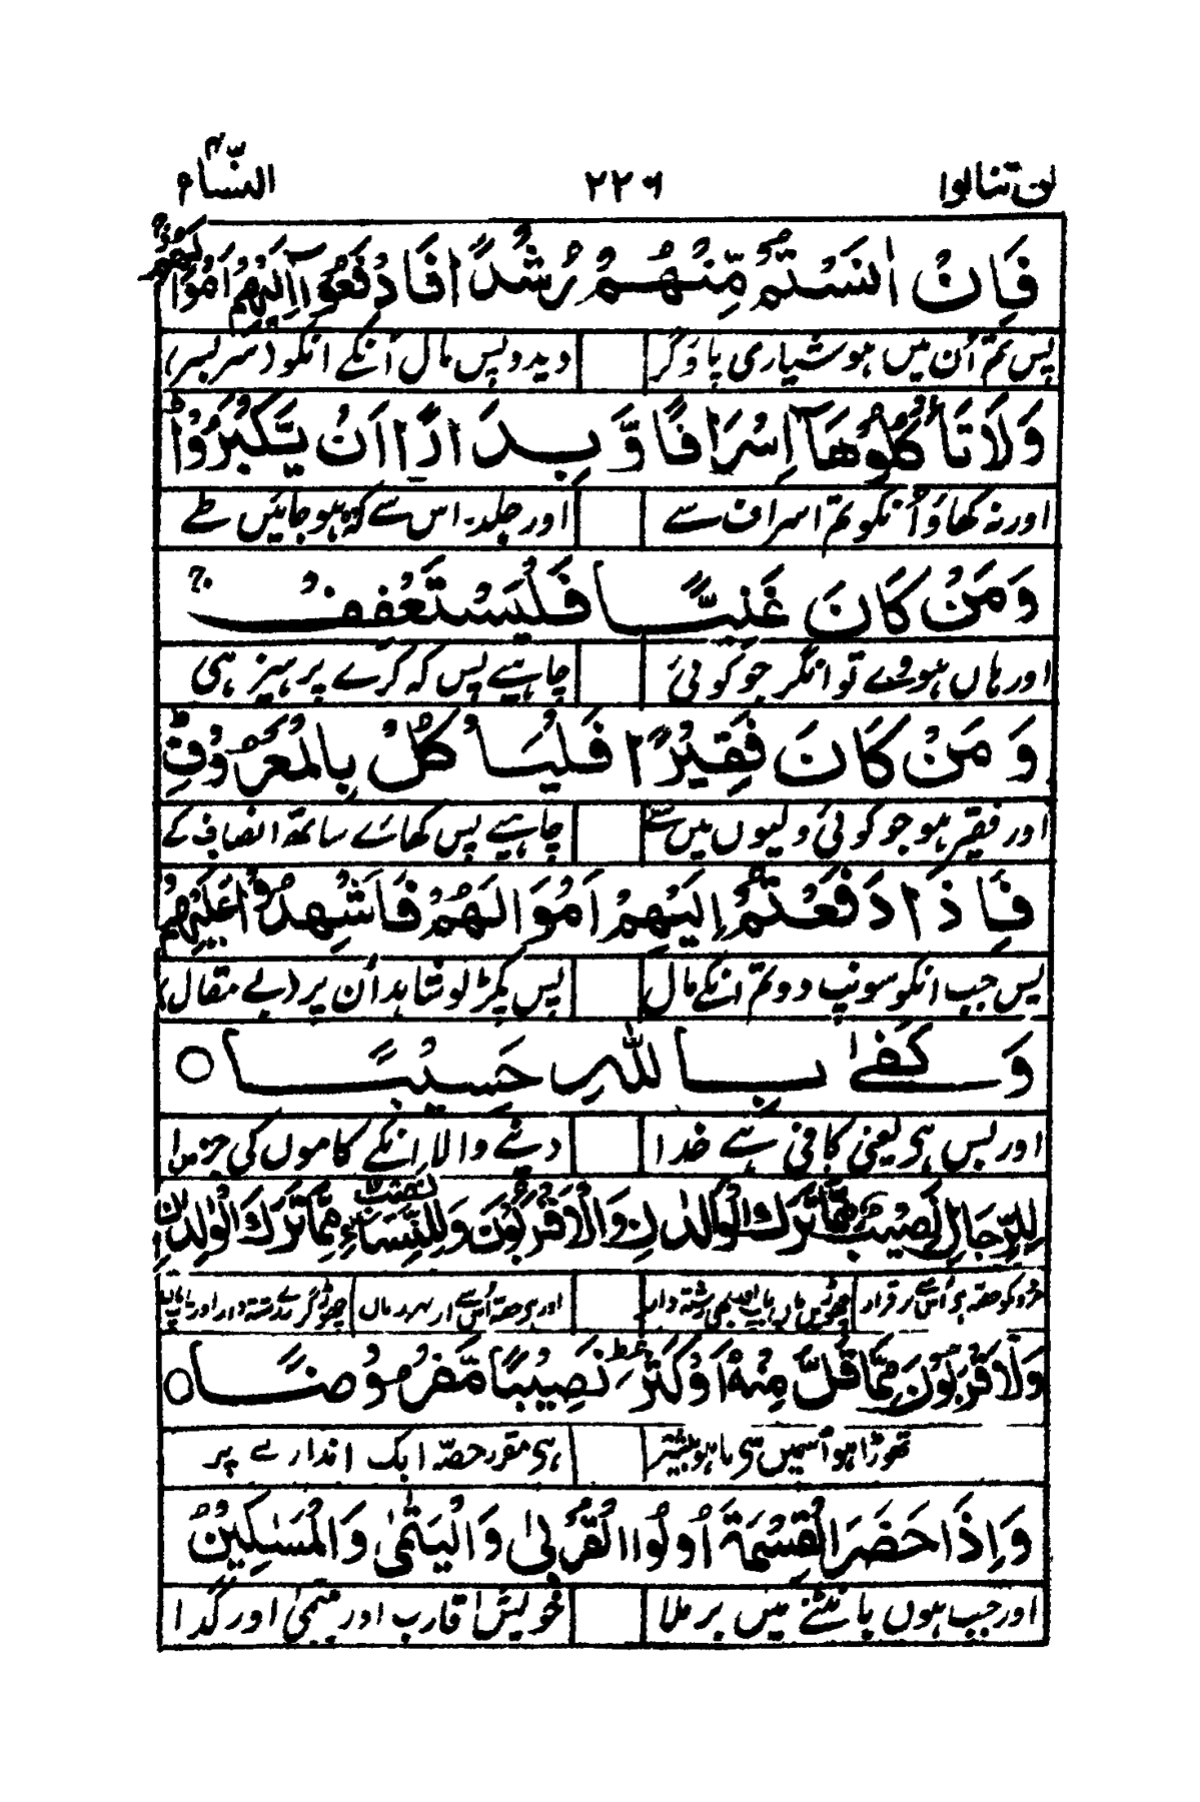 لن تنالوا ۲۲۶ النساء ۴
فَاِنْ اٰنَسْتُمْ مِّنْهُمْ رُشْدًا فَادْفَعُوْٓا اِلَيْهِمْ اَمْوَالَهُمْ ۚ
پس تم اُن میں ہوشیاری پاؤ گر دیدو پس مال اُنکے انکو (سربسر)
وَلَا تَاْكُلُوْهَآ اِسْرَافًا وَّبِدَارًا اَنْ يَّكْبَرُوْا ۭ
اور نہ کھاؤ اُنکو تم اسراف سے اور جلد۔ اس سے کہ ہو جائیں
وَمَنْ كَانَ غَنِيًّا فَلْيَسْتَعْفِفْ ۚ
اور ہاں ہووے توانگر جو کوئی چاہیے پس کہ کرے پرہیز ہی
وَمَنْ كَانَ فَقِيْرًا فَلْيَاْكُلْ بِالْمَعْرُوْفِ ۭ
اور فقیر ہو جو کوئی ولیوں میں سے چاہیے پس کھائے ساتھ انصاف کے
فَاِذَا دَفَعْتُمْ اِلَيْهِمْ اَمْوَالَهُمْ فَاَشْهِدُوْا عَلَيْهِمْ
پس جب انکو سونپ دو تم انکے مال پس پکڑ لو شاہد اُن پر (بے مقال)
وَكَفٰى بِاللّٰهِ حَسِيْبًا ○
اور بس ہی یعنی کافی ہے خدا دینے والا انکے کاموں کی جزا
لِلرِّجَالِ نَصِيْبٌ مِّمَّا تَرَكَ الْوَالِدٰنِ وَالْاَقْرَبُوْنَ وَلِلنِّسَاۗءِ نَصِيْبٌ مِّمَّا تَرَكَ الْوَالِدٰنِ
مرد کو حصہ ہی اُس سے برقرار چھوڑیں ماں باپ اور بھی رشتہ دار اور ہی حصہ اُس سے
وَالْاَقْرَبُوْنَ مِمَّا قَلَّ مِنْهُ اَوْ كَثُرَ ۭ نَصِيْبًا مَّفْرُوْضًا ○
تھوڑا ہو اُسمیں ہی یا ہو بیشتر ہی مقرر حصّہ ایک انداز سے پر
وَاِذَا حَضَرَ الْقِسْمَةَ اُولُوا الْقُرْبٰى وَالْيَتٰمٰى وَالْمَسٰكِيْنُ
اور جب ہوں بانٹنے میں برملا خویش اقارب اور یتیمٰی اور گدا